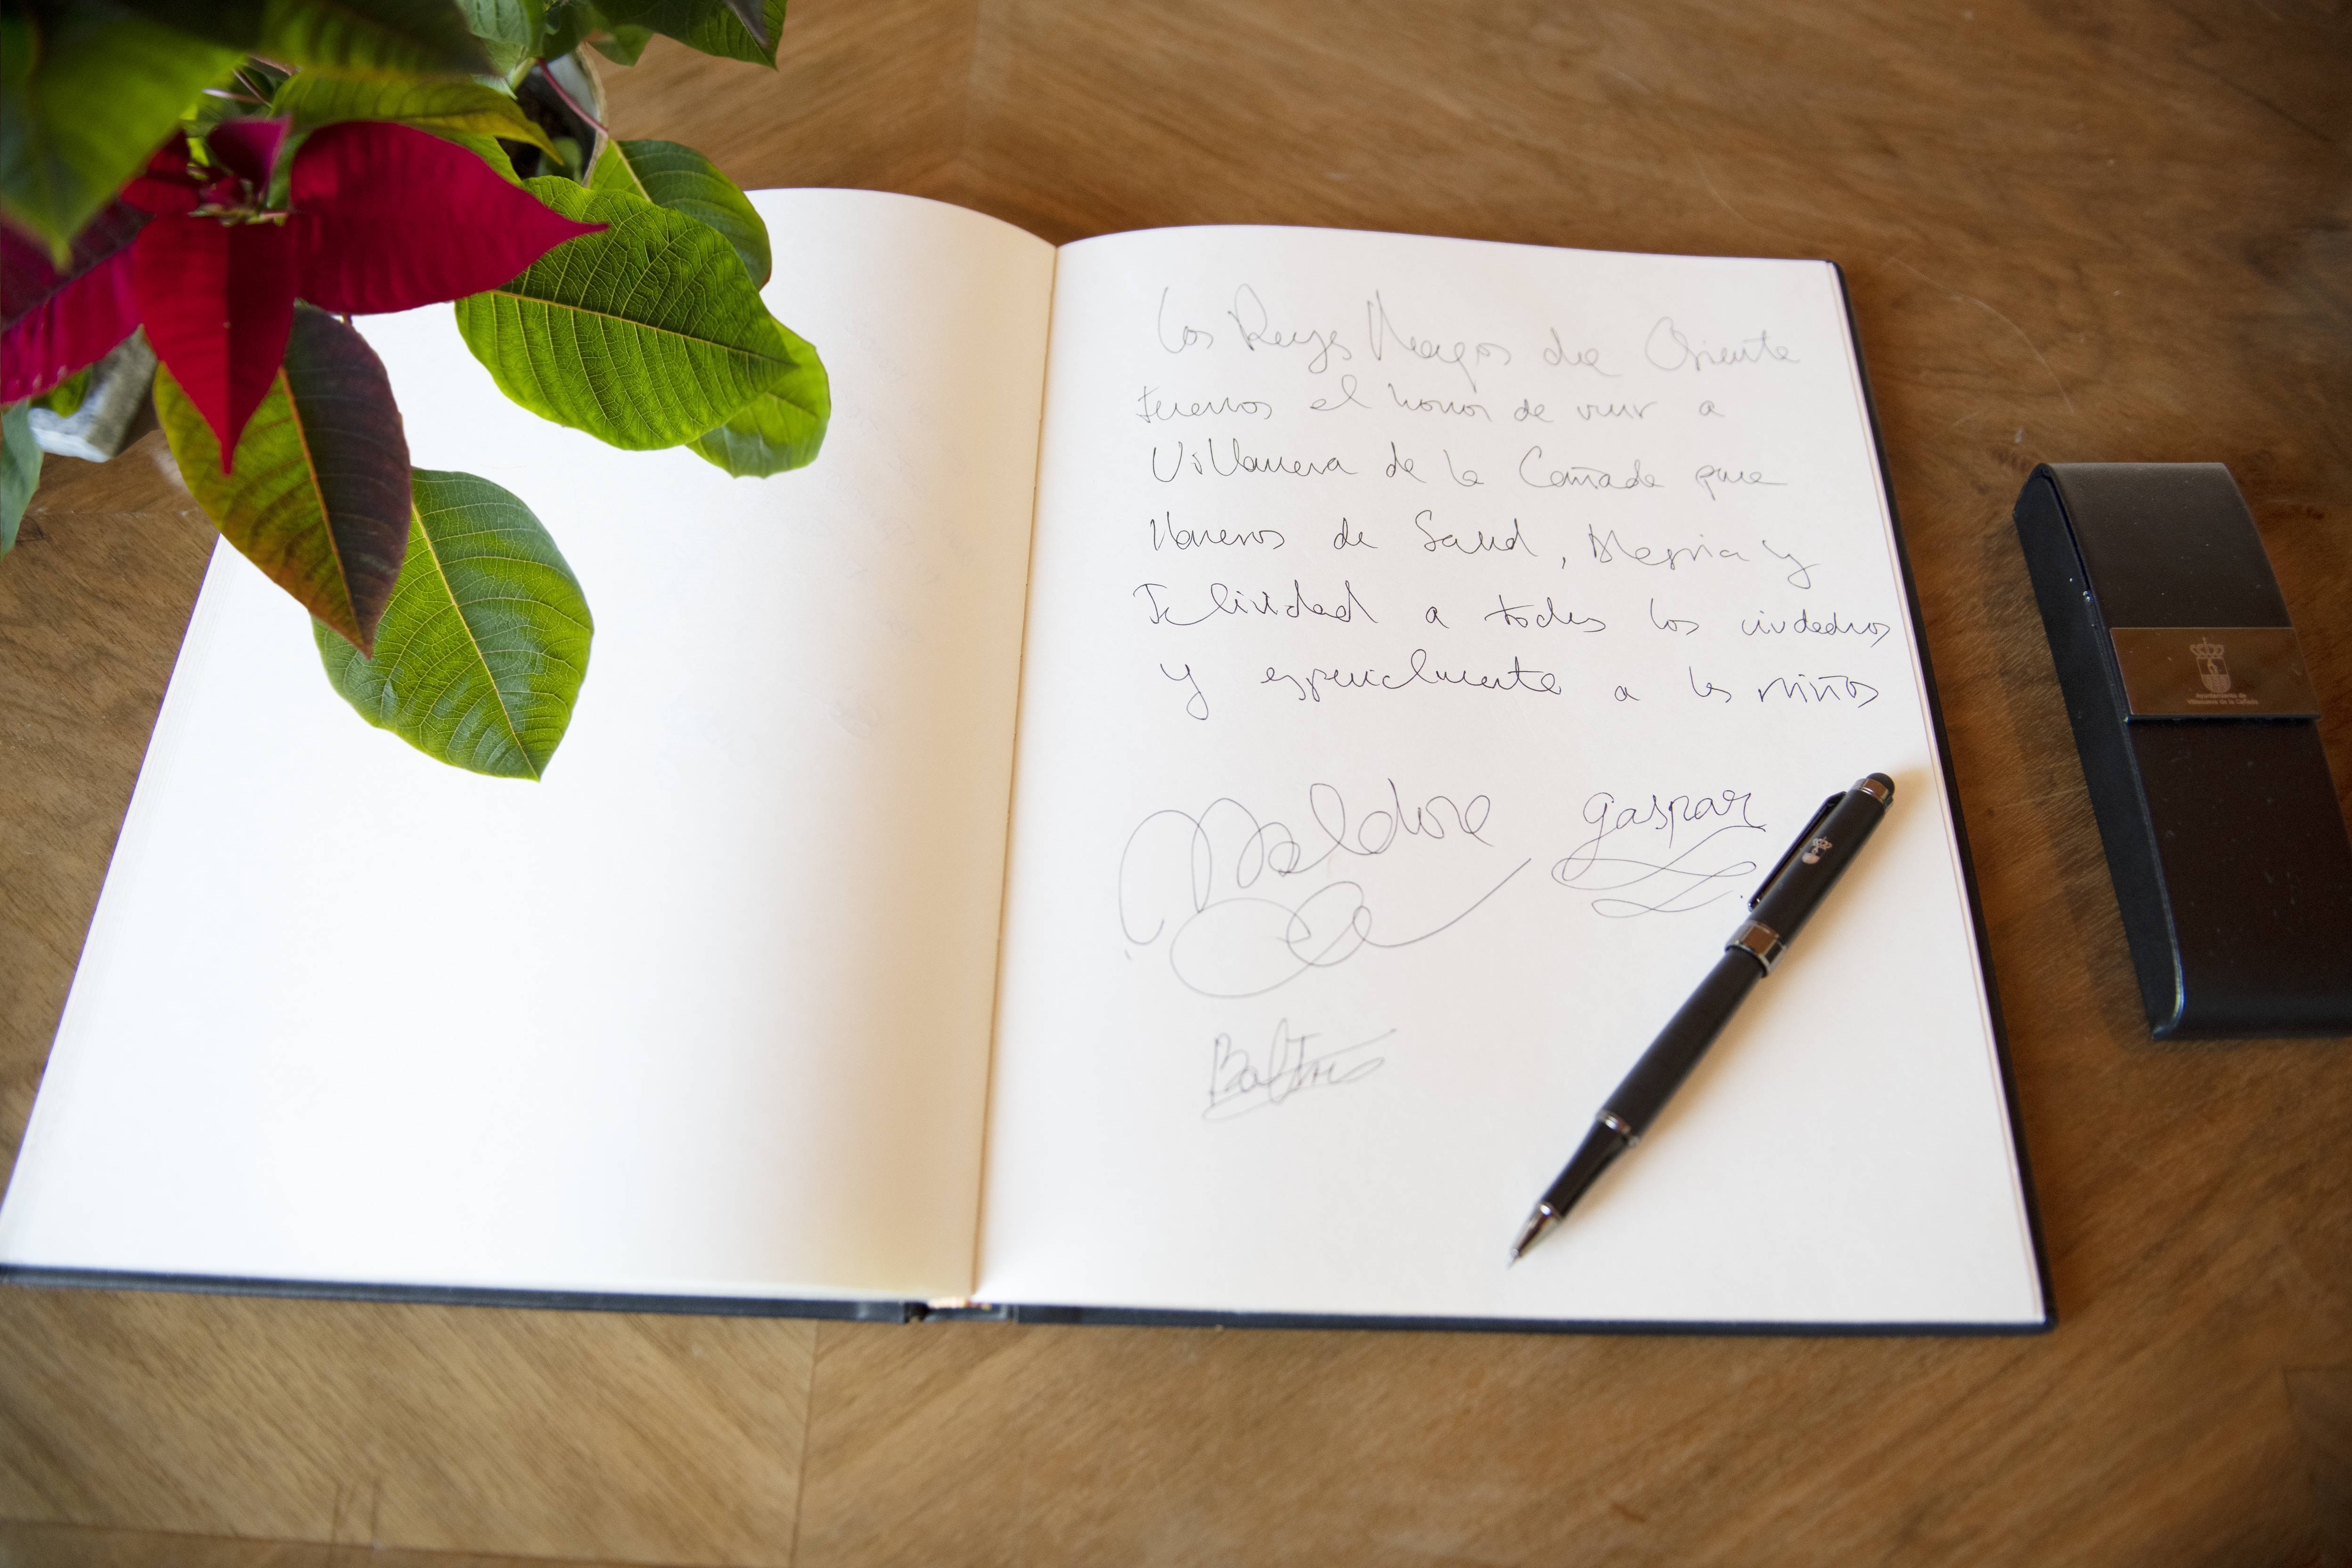 Los Reyes Magos de Oriente
tenemos el honor de venir a
Villanueva de la Cañada para
llenaros de Salud, Alegria y
Felicidad a todos los ciudadanos
y especialmente a los niños
Melchor
gaspar
Baltasar
Ayuntamiento de
Villanueva de la Cañada